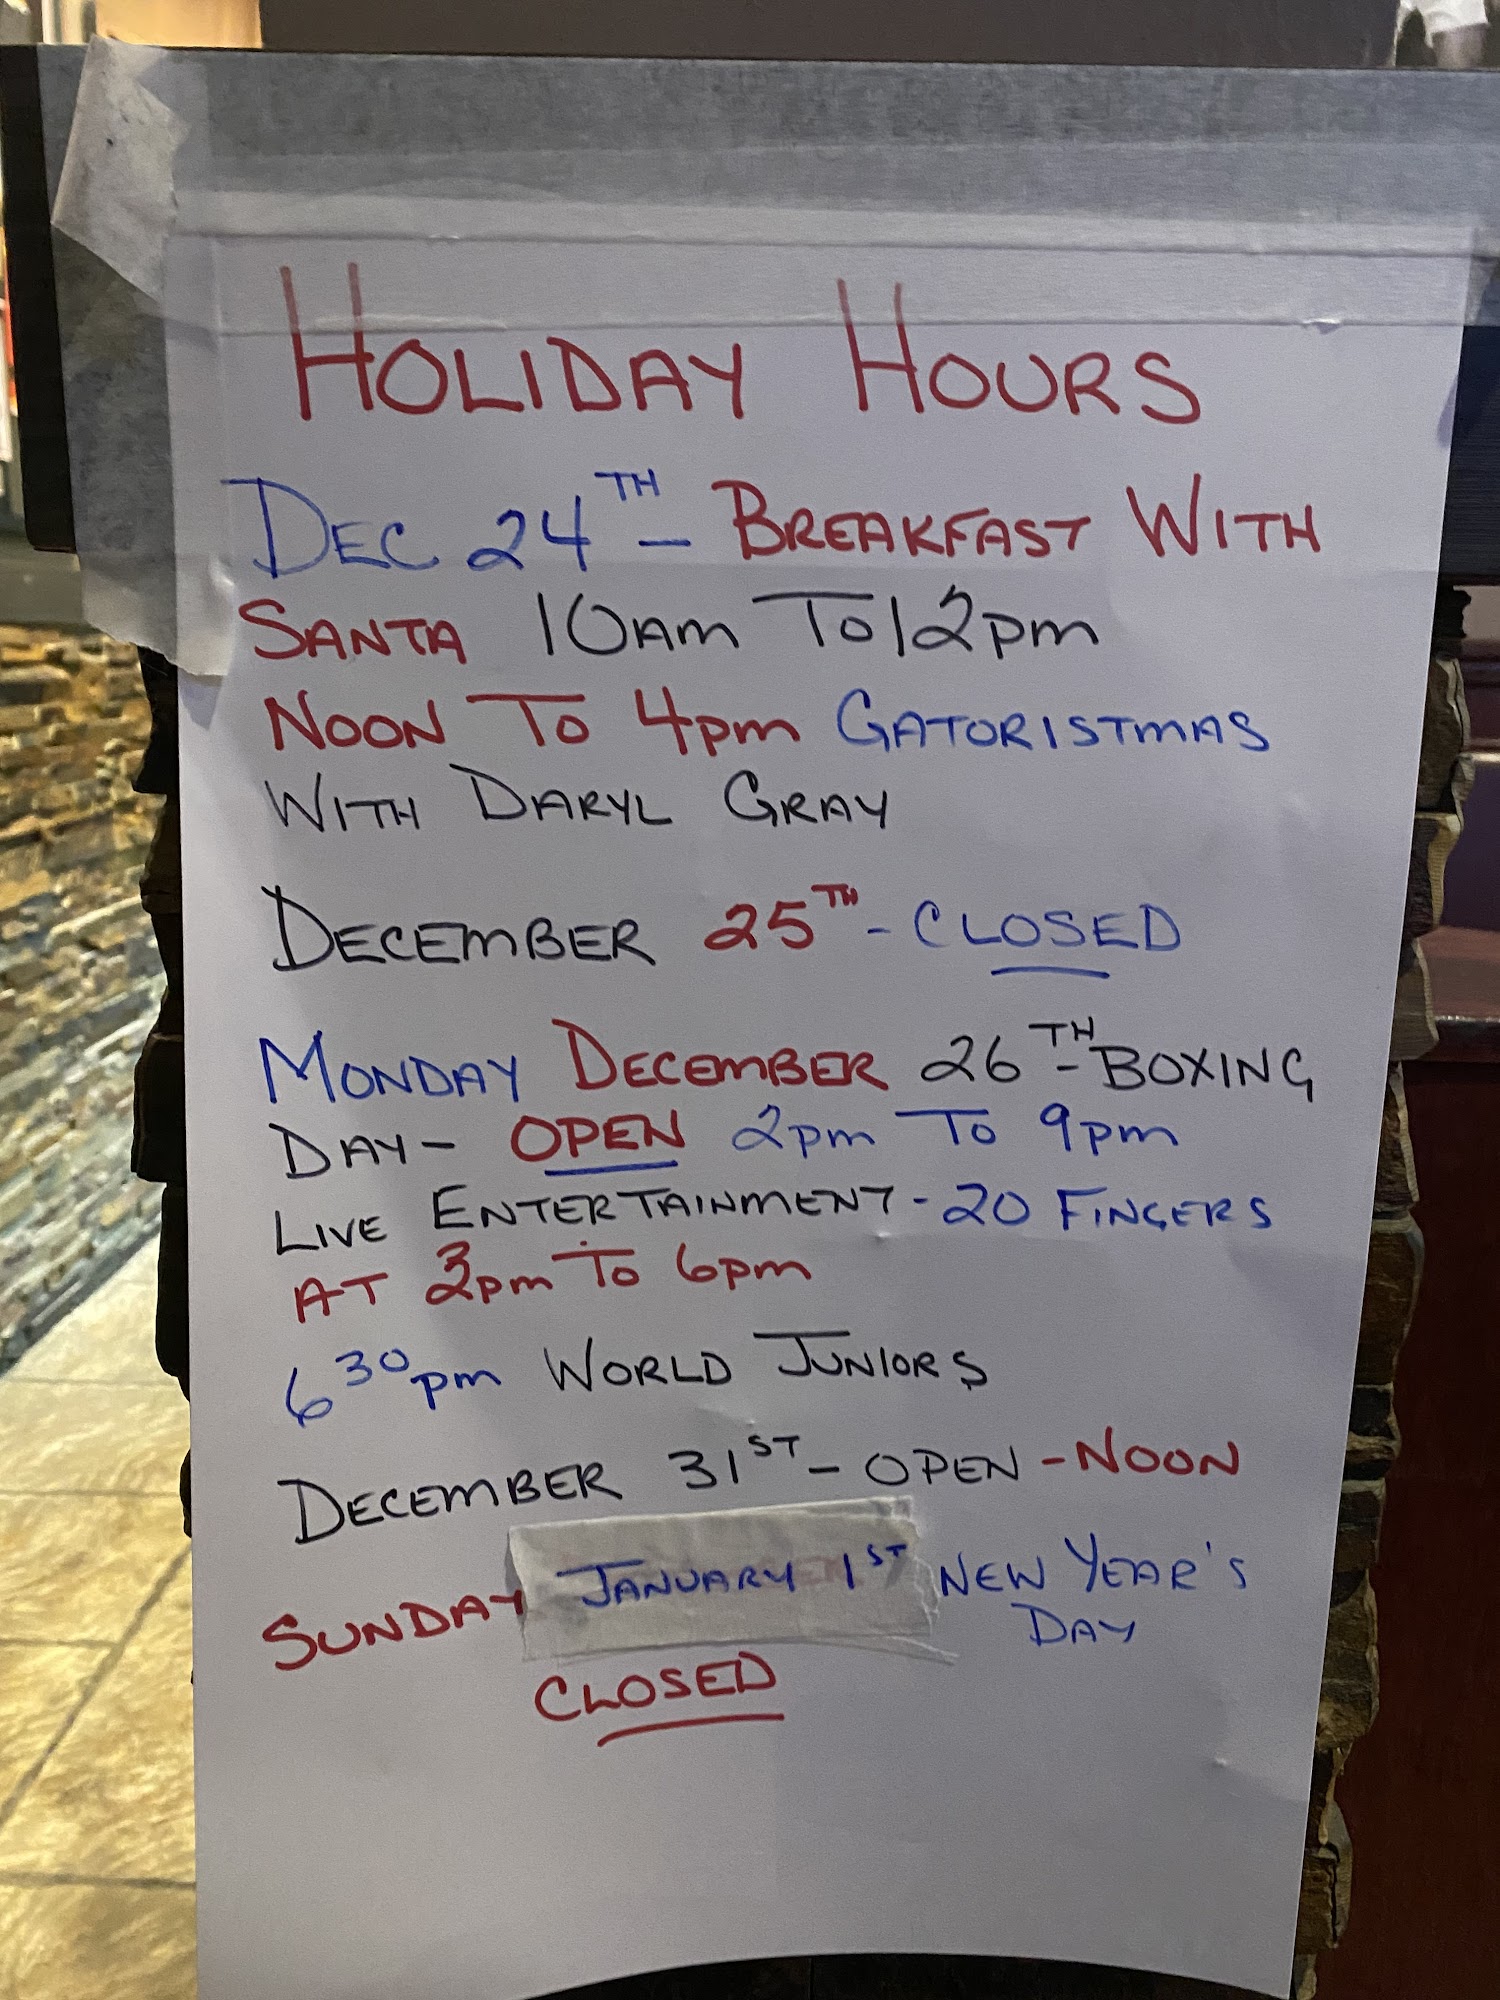 HOLIDAY HOURS
DEC 24TH - BREAKFAST WITH
SANTA 10AM TO 12PM
NOON TO 4PM GATORISTMAS
WITH DARYL GRAY
DECEMBER 25TH - CLOSED
MONDAY DECEMBER 26TH - BOXING
DAY - OPEN 2PM TO 9PM
LIVE ENTERTAINMENT - 20 FINGERS
AT 3PM TO 6PM
6 30 PM WORLD JUNIORS
DECEMBER 31ST - OPEN - NOON
SUNDAY JANUARY 1ST NEW YEAR'S
DAY
CLOSED